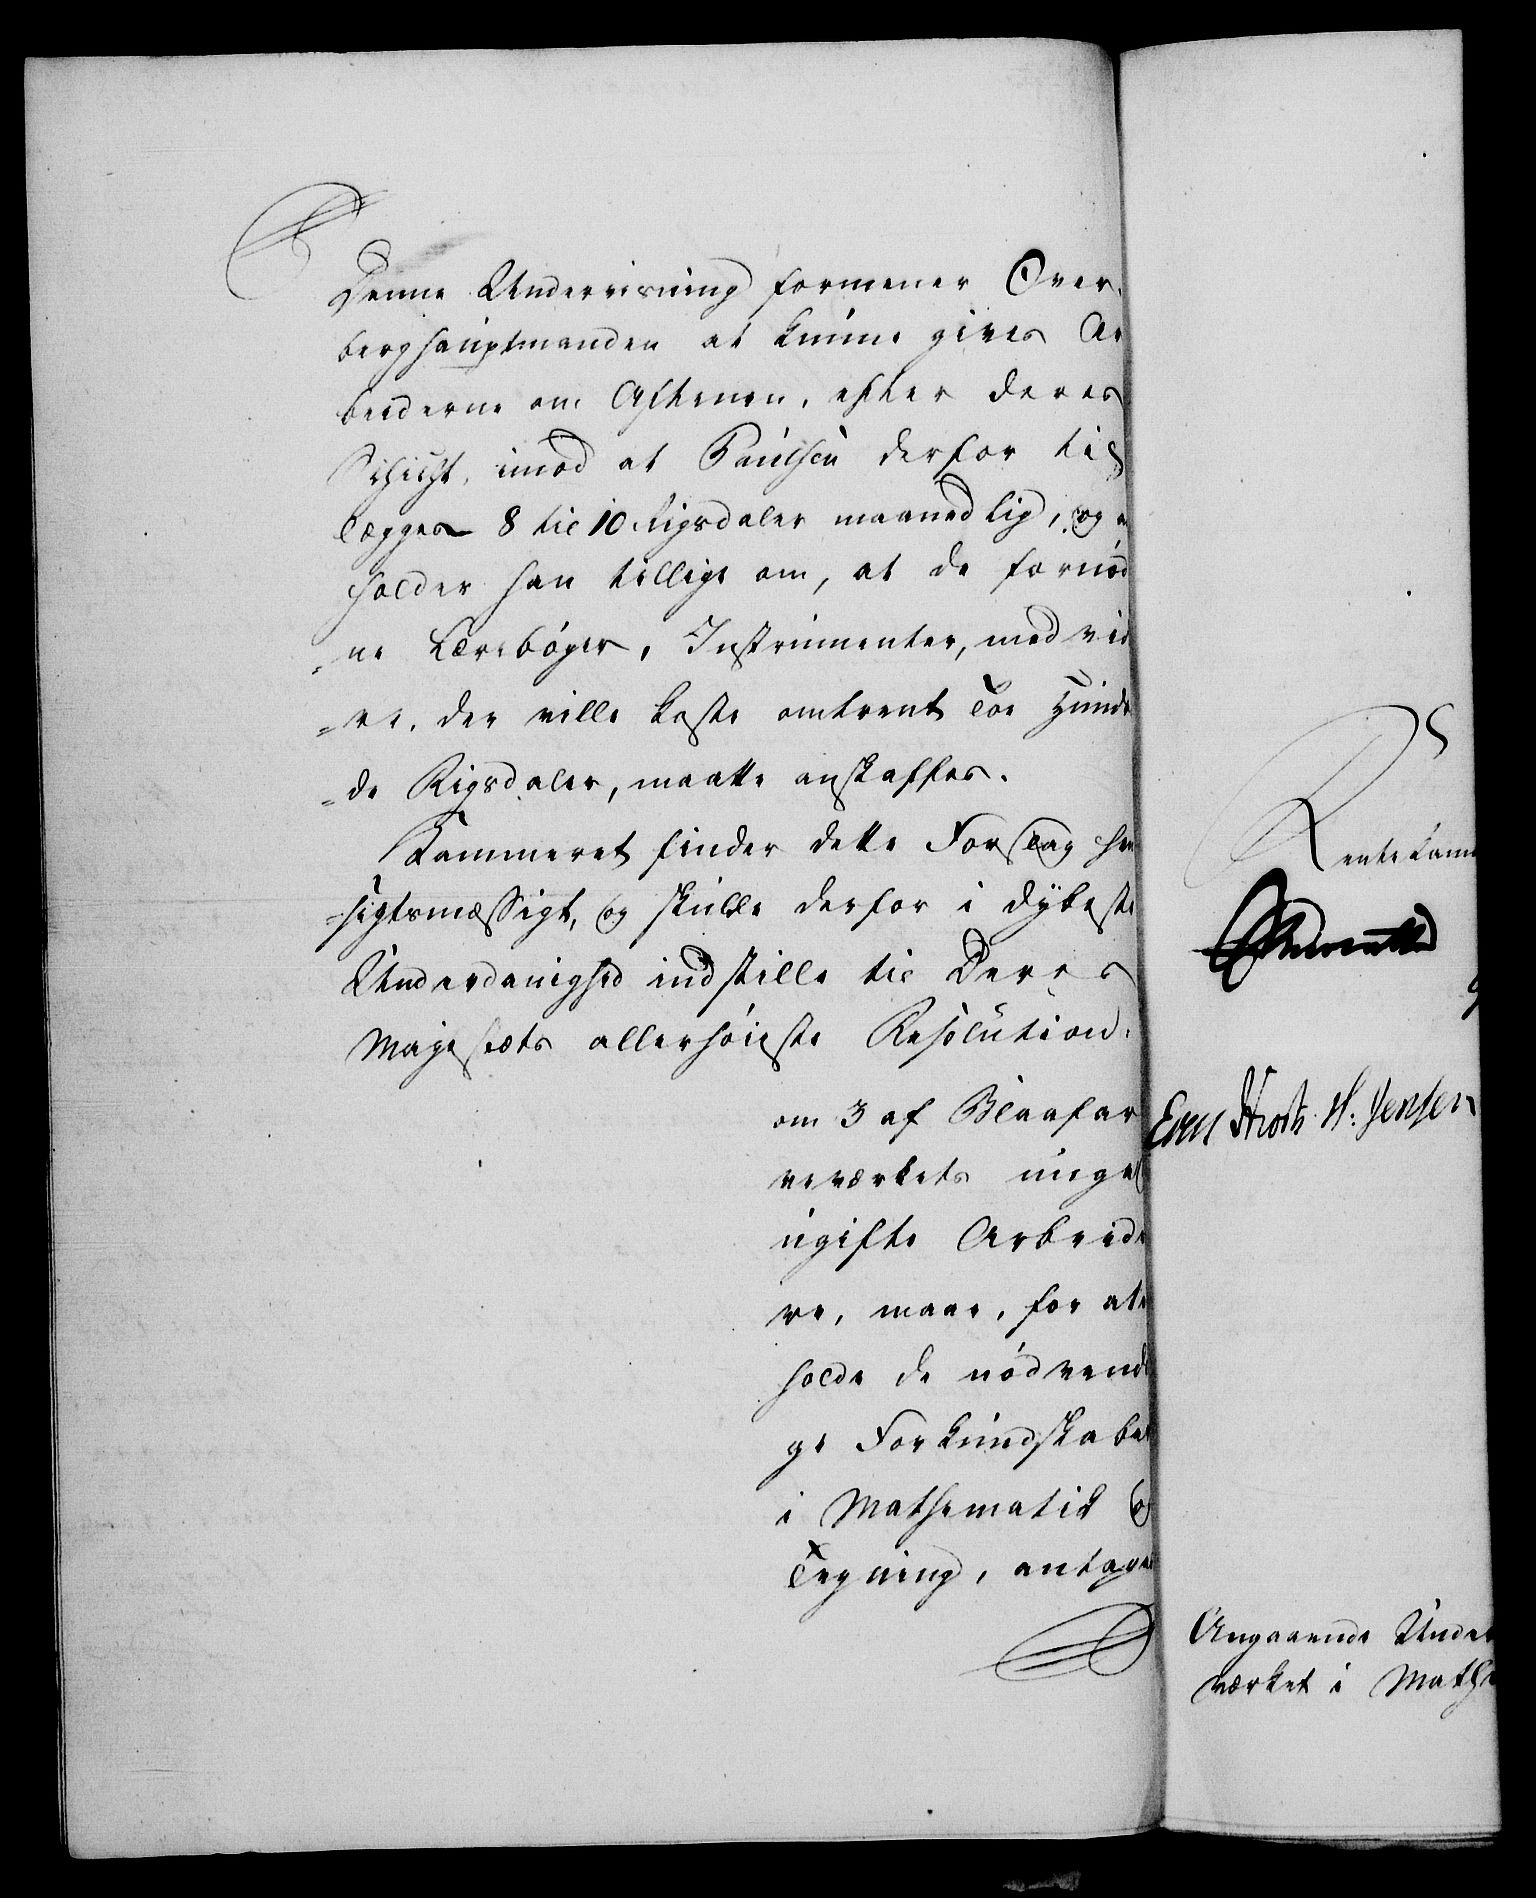 Denne Underviisning formener Over-
berghauptmanden at kunne gives Ar
beiderne om Aftenen, efter deres
Schicht, imod at Paulsen derfor til
lægges 8 til 10 Rigsdaler maanedlig, og
holder han tillige om, at de fornød
=ne Lærebøger, Instrumenter, med vid
=re, der ville koste omtrent Toe Hundr
=de Rigsdaler, maatte anskaffes.
Kammeret finder dette Forslag hen
=sigtsmæssigt, og skulde derfor i dybeste
Underdanighed indstille til Deres
Majestæts allerhøieste Resolution:
om 3 af Blaafar
veværkets unge
ugifte Arbeide
re, maae, for at
holde de nødvendi
ge Forkundskaber
i Mathematik og
Tegning, antages
Rentekam
H. Jensen
Angaaende Under
værket i Mathe